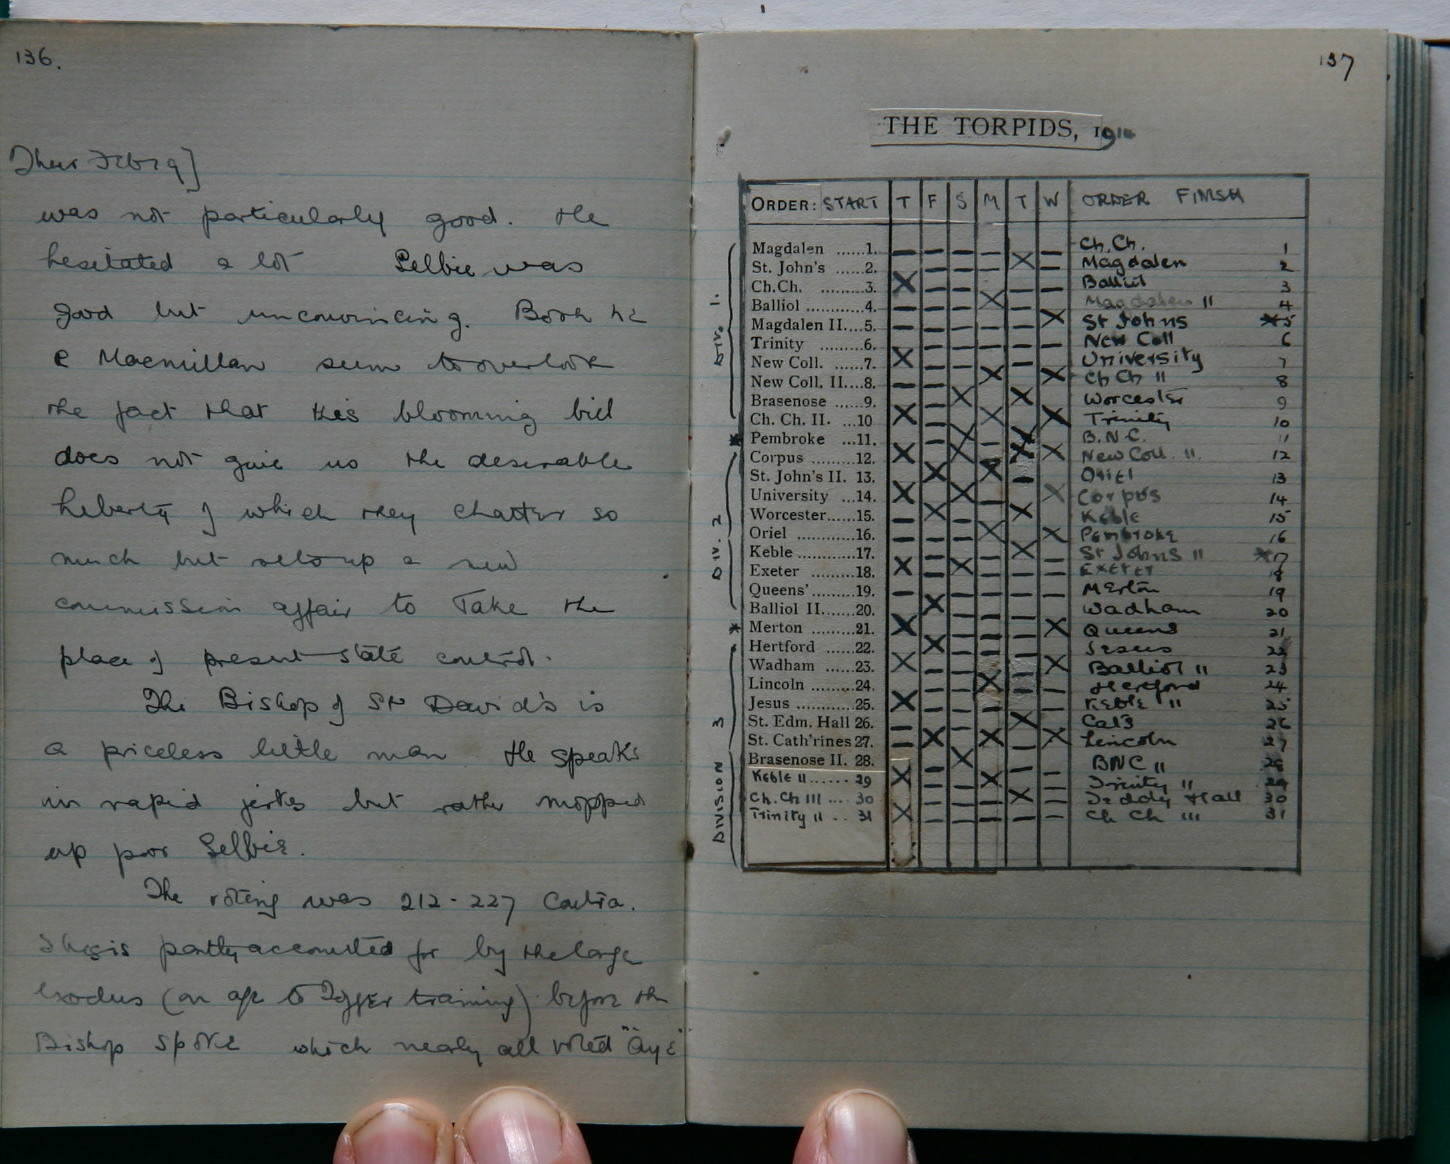 136.
Thur Feb 19]
was not particularly good. He
hesitated a lot Selbie was
good but unconvincing. Both he
& Macmillan seem to overlook
the fact that this blooming bill
does not give us the desirable
liberty of which they chatter so
much but sets up a new
commission affair to take the
place of present state control.
The Bishop of St David's is
a priceless little man He speaks
in rapid jerks but rather mopped
up poor Selbie.
The voting was 212-227 Contra.
This is partly accounted for by the large
exodus (on a/c to Togger training) before the
Bishop spoke which nearly all voted "Aye"
137
THE TORPIDS, 1914
ORDER: START T F S M T W ORDER FINISH
Magdalen ......1. – – – – X – Ch.Ch. 1
St. John's ......2. Magdalen 2
Ch.Ch. ......3. Balliol 3
Balliol ......4. Magdalen II 4
Magdalen II....5. St Johns 5
Trinity ......6. New Coll 6
New Coll. ......7. University 7
New Coll. II....8. Ch Ch II 8
Brasenose ......9. Worcester 9
Ch. Ch. II. ...10 Trinity 10
Pembroke ...11. B.N.C. 11
Corpus ......12. New Coll. II. 12
St. John's II. 13. Oriel 13
University ...14. Corpus 14
Worcester......15. Keble 15
Oriel ............16. Pembroke 16
Keble .........17. St Johns II 17
Exeter .........18. Exeter 18
Queens' .........19. Merton 19
Balliol II.......20. Wadham 20
Merton .........21. Queens 21
Hertford ......22. Jesus 22
Wadham ......23. Balliol II 23
Lincoln .........24. Hertford 24
Jesus .........25. Keble II 25
St. Edm. Hall 26. Cats 26
St. Cath'rines 27. Lincoln 27
Brasenose II. 28. BNC II 28
Keble II ...... 29 Trinity II 29
Ch. Ch III ... 30 Teddy Hall 30
Trinity II .. 31 Ch Ch III 31
Div. 1.
Div. 2
DIVISION 3